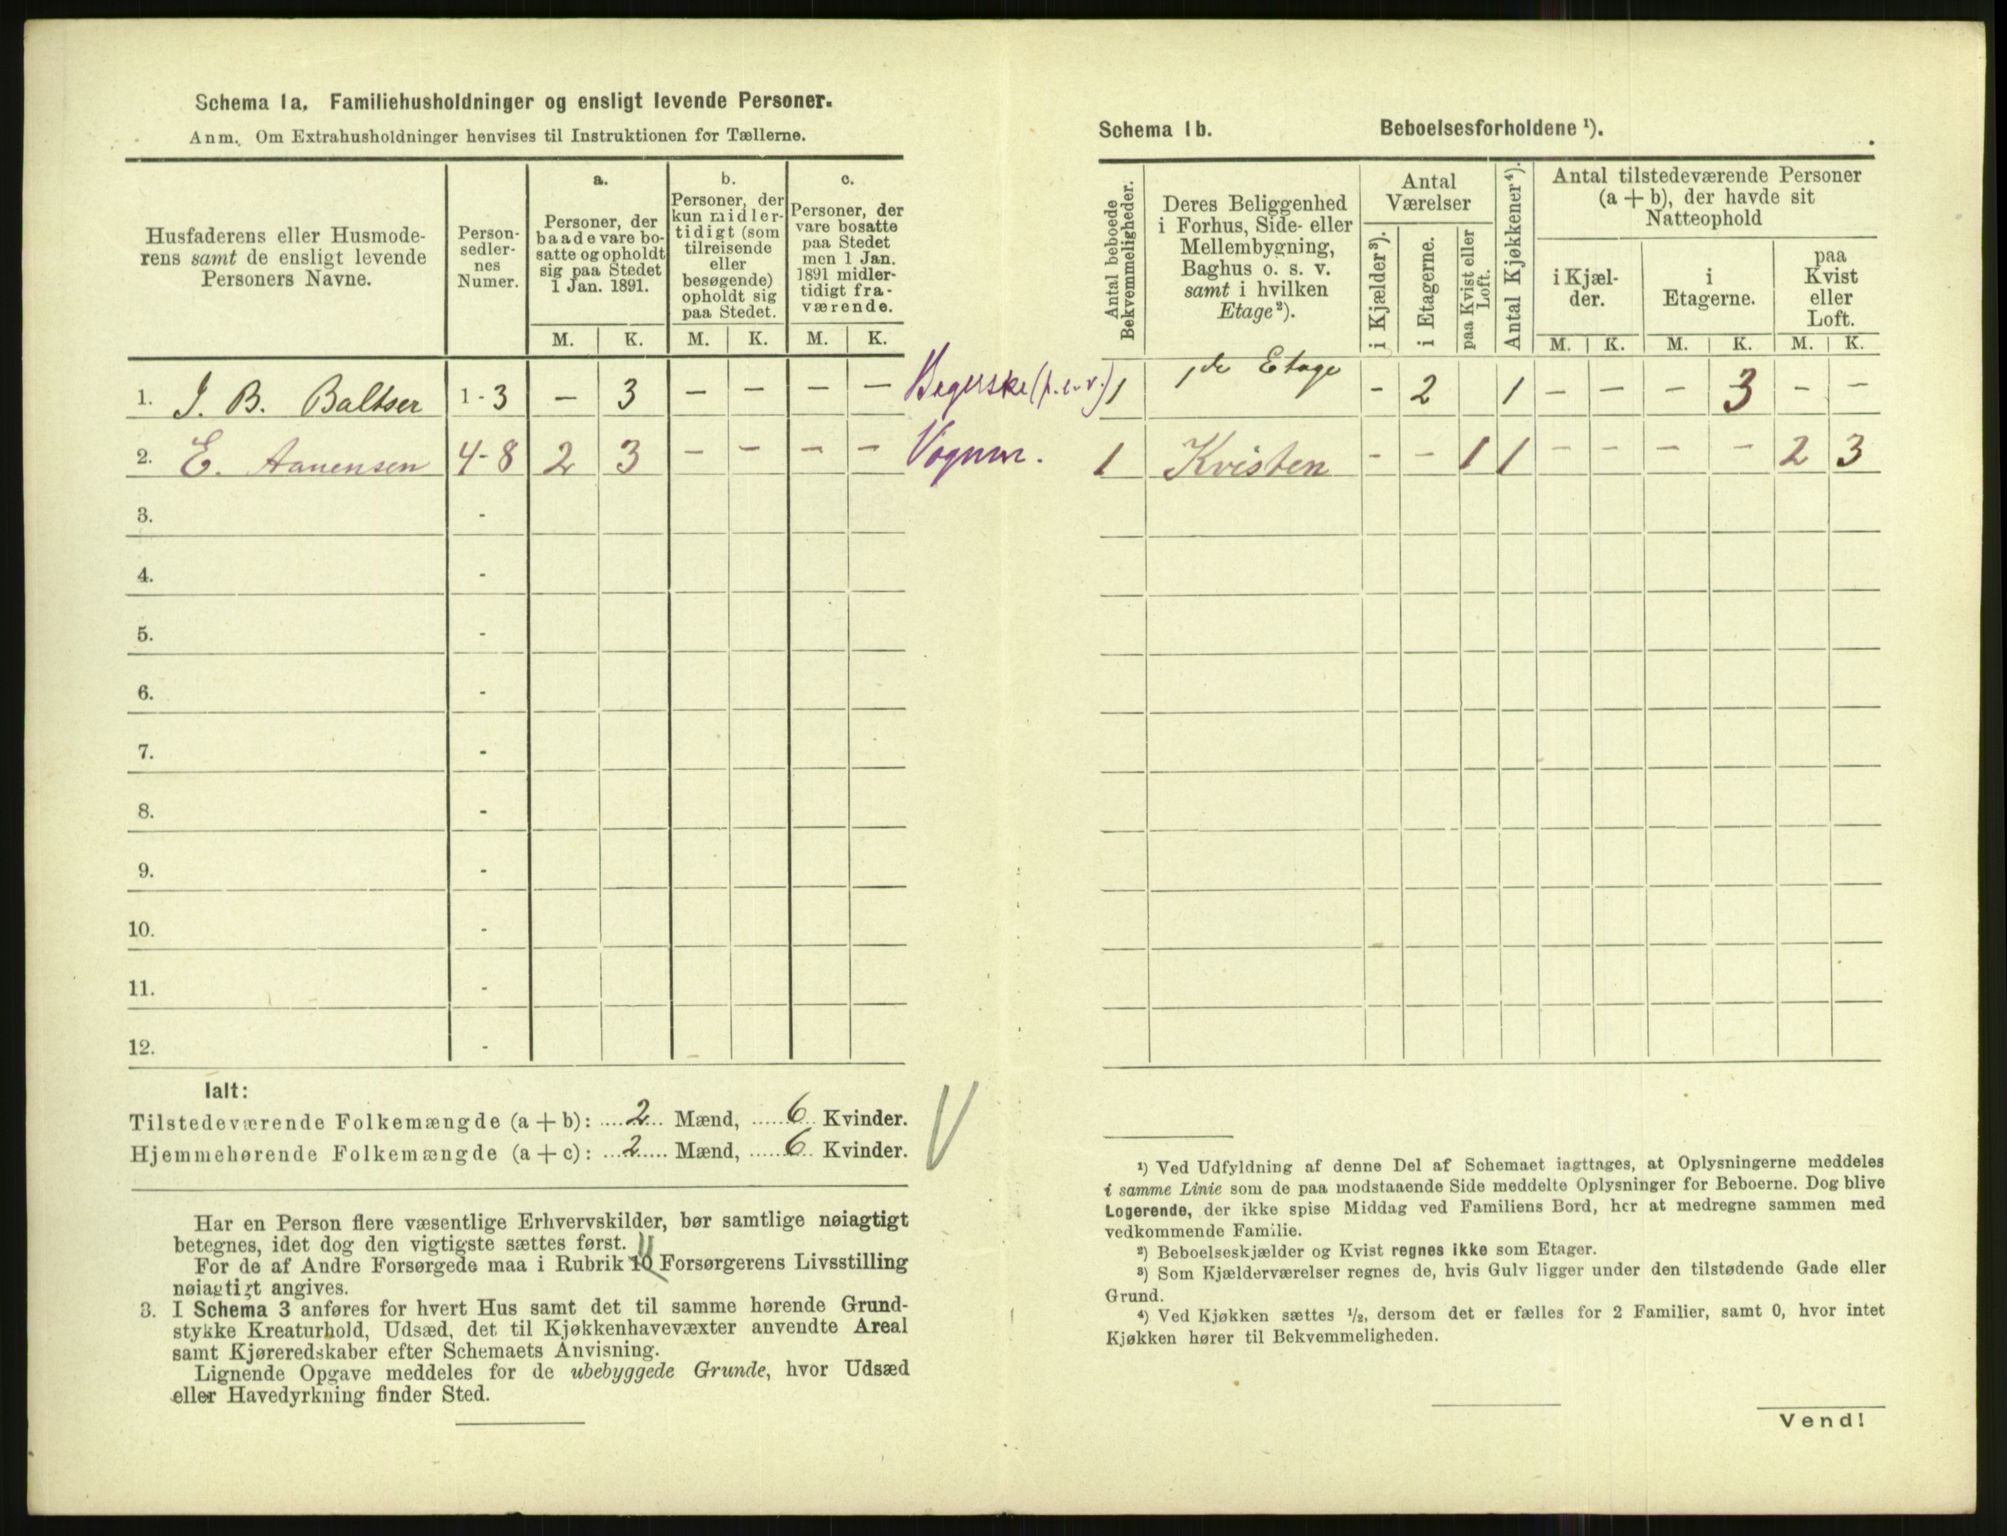 Schema 1a. Familiehusholdninger og ensligt levende Personer.
Anm. Om Extrahusholdninger henvises til Instruktionen for Tællerne.
Husfaderens eller Husmode-
rens samt de ensligt levende
Personers Navne.
Person-
sedler-
nes
Numer.
a.
Personer, der
baade vare bo-
satte og opholdt
sig paa Stedet
1 Jan. 1891.
b.
Personer, der
kun midler-
tidigt (som
tilreisende
eller
besøgende)
opholdt sig
paa Stedet.
c.
Personer, der
vare bosatte
paa Stedet
men 1 Jan.
1891 midler-
tidigt fra-
værende.
M. K. M. K. M. K.
1. J. B. Baltser 1-3 – 3 – – – –
2. E. Aanensen 4-8 2 3 – – – – Vognm.
3. -
4. -
5. -
6. -
7. -
8. -
9. -
10. -
11. -
12. -
Ialt:
Tilstedeværende Folkemængde (a + b): 2 Mænd, 6 Kvinder.
Hjemmehørende Folkemængde (a + c): 2 Mænd, 6 Kvinder.
Har en Person flere væsentlige Erhvervskilder, bør samtlige nøiagtigt
betegnes, idet dog den vigtigste sættes først.
For de af Andre Forsørgede maa i Rubrik 10 11 Forsørgerens Livsstilling
nøiagtigt angives.
3. I Schema 3 anføres for hvert Hus samt det til samme hørende Grund-
stykke Kreaturhold, Udsæd, det til Kjøkkenhavevæxter anvendte Areal
samt Kjøreredskaber efter Schemaets Anvisning.
Lignende Opgave meddeles for de ubebyggede Grunde, hvor Udsæd
eller Havedyrkning finder Sted.
Schema 1b. Beboelsesforholdene ¹).
Antal beboede
Bekvemmeligheder.
Deres Beliggenhed
i Forhus, Side- eller
Mellembygning,
Baghus o. s. v.
samt i hvilken
Etage²).
Antal
Værelser
i Kjælder³).
i Etagerne.
paa Kvist eller
Loft.
Antal Kjøkkener⁴).
Antal tilstedeværende Personer
(a + b), der havde sit
Natteophold
i Kjæl-
der.
i
Etagerne.
paa
Kvist
eller
Loft.
M. K. M. K. M. K.
1 1de Etage – 2 1 – – – 3 – –
1 Kvisten – – 1 1 – – – – 2 3
¹) Ved Udfyldning af denne Del af Schemaet iagttages, at Oplysningerne meddeles
i samme Linie som de paa modstaaende Side meddelte Oplysninger for Beboerne. Dog blive
Logerende, der ikke spise Middag ved Familiens Bord, her at medregne sammen med
vedkommende Familie.
²) Beboelseskjælder og Kvist regnes ikke som Etager.
³) Som Kjælderværelser regnes de, hvis Gulv ligger under den tilstødende Gade eller
Grund.
⁴) Ved Kjøkken sættes ½, dersom det er fælles for 2 Familier, samt 0, hvor intet
Kjøkken hører til Bekvemmeligheden.
Vend!